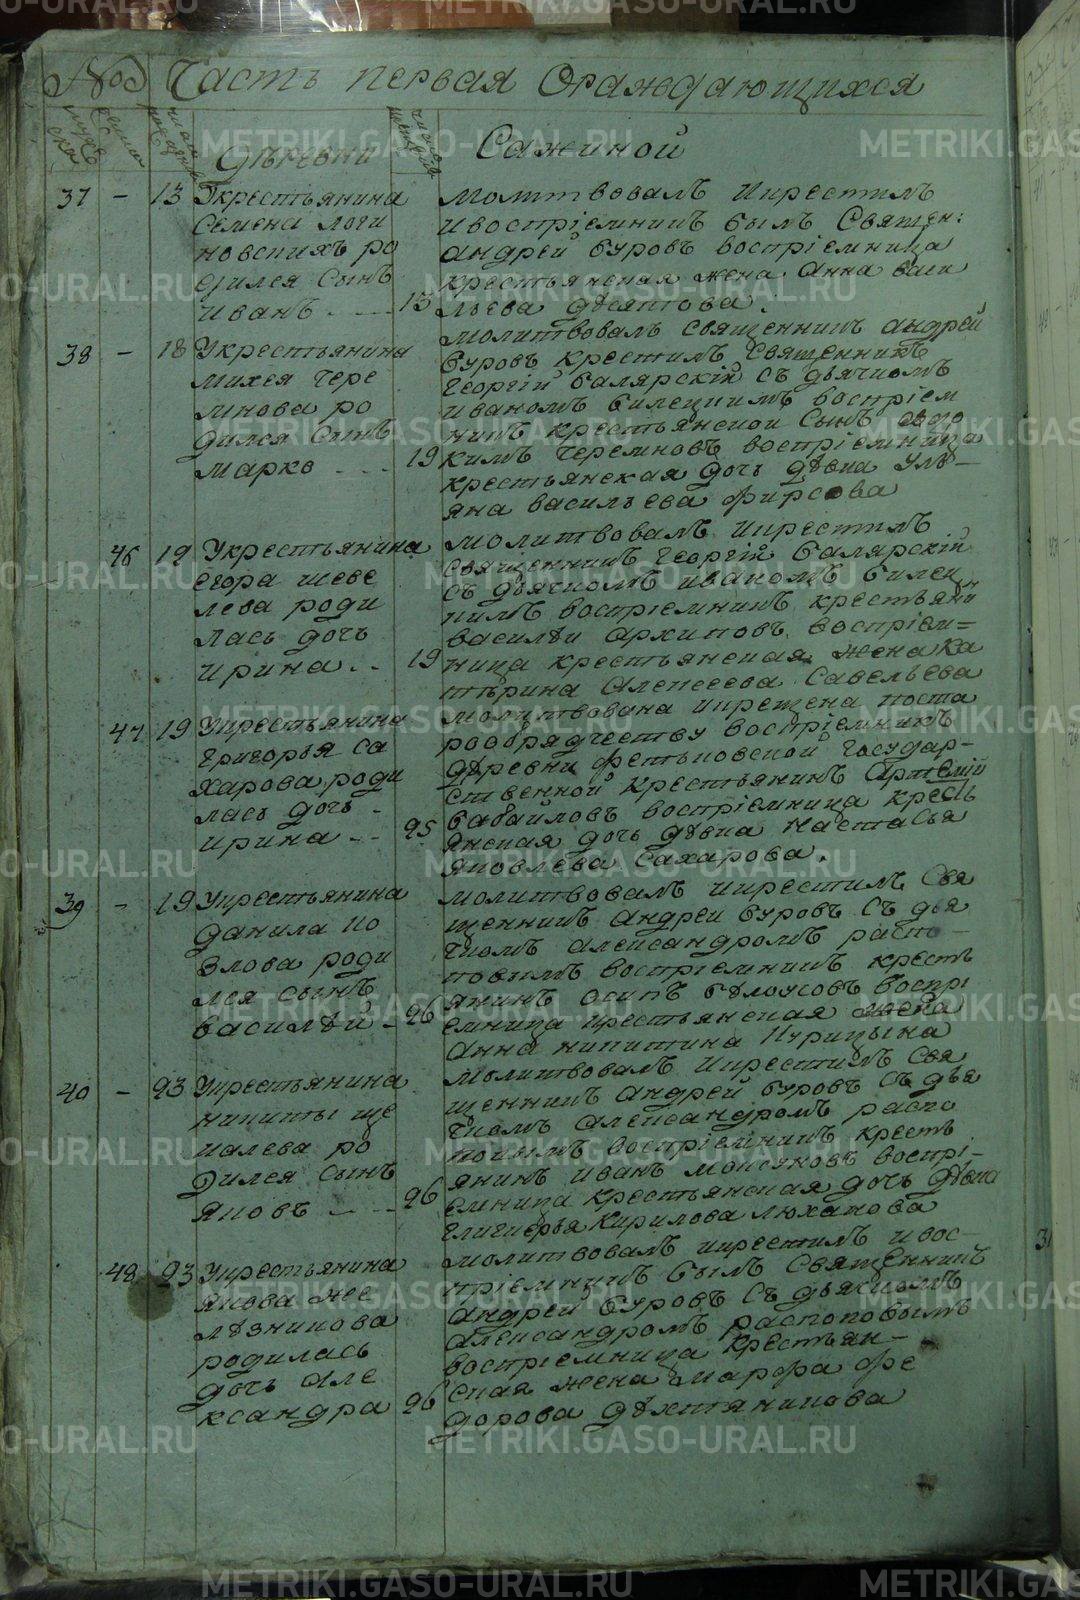 № Часть первая Ораждающихся
муже ска
женска
число рожден
число крещен
Деревни Сажиной
37 – 13 Укрестьянина
Семена логи
новскихъ ро
дился Сынъ
иванъ 13
молитвовалъ икрестилъ
ивоспрiемникъ былъ Священ:
андрей буровъ воспрiемница
крестьянская жена анна васи
льева десятова.
38 – 18 Укрестьянина
михея чере
мнова ро
дился Сынъ
марко 19
молитвовалъ священникъ андрей
буровъ крестилъ священникъ
георгiй балярскiй съ дьячкомъ
иваномъ билецкимъ воспрiем
никъ крестьянской сынъ евдо
кимъ черемновъ воспрiемница
крестьянская дочь девка улъ–
яна васильева фирсова
46 19 Укрестьянина
егора шеве
лева роди
лась дочь
ирина 19
молитвовалъ икрестилъ
священникъ георгiй балярскiй
съ дьячкомъ иваномъ билец
кимъ воспрiемникъ крестьянин
василѣи архиповъ воспрiем=
ница крестьянская жена ка
тѣрина алексеева савельева
47 19 Укрестьянина
григорья са
харова роди
лась дочь
ирина 25
молитвована икрещена поста
рообрядчеству воспрiемникъ
деревни фетьковской государ–
ственной крестьянинъ артемiй
бабайловъ воспрiемница кресть
янская дочь девка настасья
яковлева сахарова.
39 – 19 Укрестьянина
данила ко
злова роди
лся сынъ
василѣй 26
молитвовалъ икрестилъ свя
щенникъ андрей буровъ съ дья
чкомъ александромъ распо–
повымъ воспрiемникъ кресть
янинъ осипъ бѣлоусовъ воспрi
емница крестьянская жена
анна никитина курицына
40 – 23 Укрестьянина
никиты ще
калева ро
дился сынъ
яковъ 26
молитвовалъ икрестилъ свя
щенникъ андрей буровъ съ дья
чкомъ александромъ распо
повымъ воспрiемникъ кресть
янинъ иванъ воспрi–
емница крестьянская дочь девка
гликирья кирилова люханова
48 23 Укрестьянина
якова же
лѣзникова
родилась
дочь але
ксандра 26
молитвовалъ икрестилъ ивос–
прiемникъ былъ священникъ
андрей буровъ съ дьячкомъ
александромъ распоповымъ
воспрiемница крестьян–
ская жена марфа фе
дорова дехтяникова